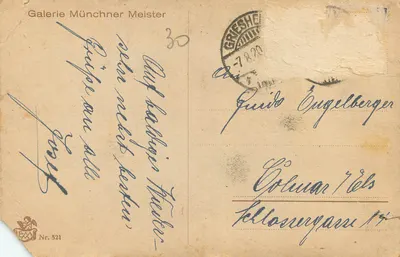 Galerie Münchner Meister
30
Auf baldiges Wieder-
sehn nebst besten
Grüße an alle
Josef
GRIESHE
-7.8.20
Guido Engelberger
Colmar i/Els
Schlossergasse 14
Nr. 521